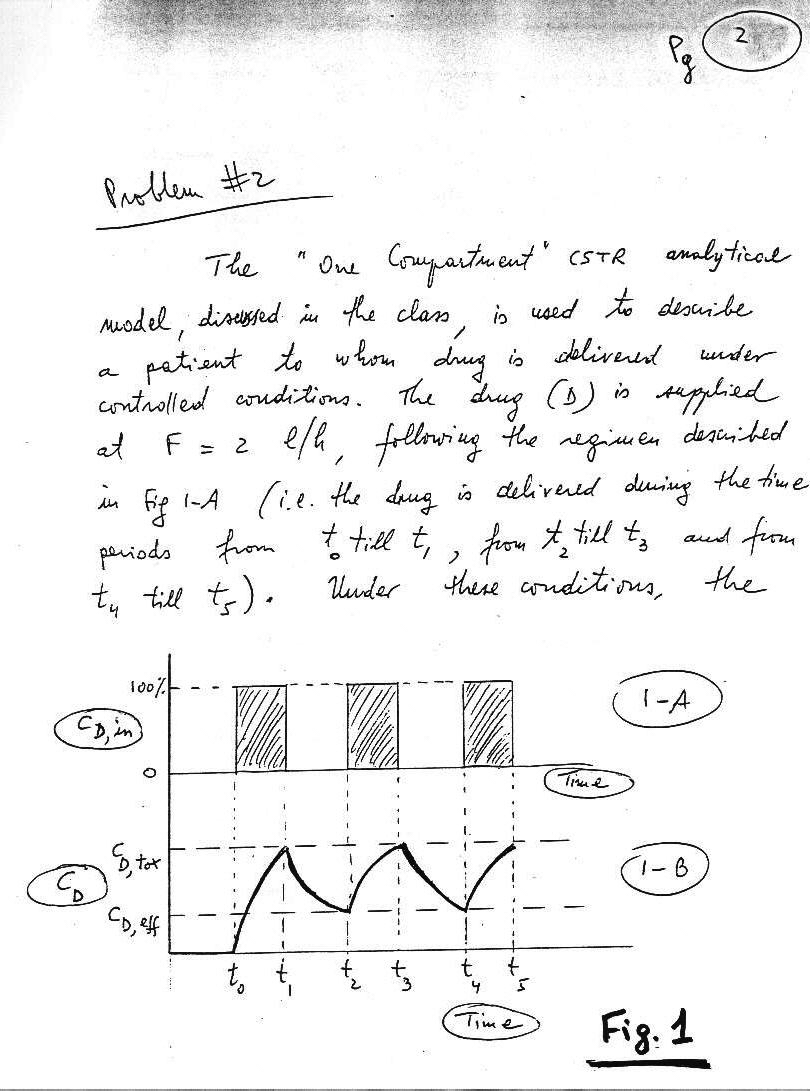 Pg 2
Problem #2
The "One Compartment" CSTR analytical
model, discussed in the class, is used to describe
a patient to whom drug is delivered under
controlled conditions. The drug (D) is supplied
at F = 2 l/h, following the regimen described
in Fig 1-A (i.e. the drug is delivered during the time
periods from t₀ till t₁, from t₂ till t₃ and from
t₄ till t₅). Under these conditions, the
100%
1-A
C_D,in
0
Time
C_D,tox
1-B
C_D
C_D,eff
t₀ t₁ t₂ t₃ t₄ t₅
Time
Fig. 1